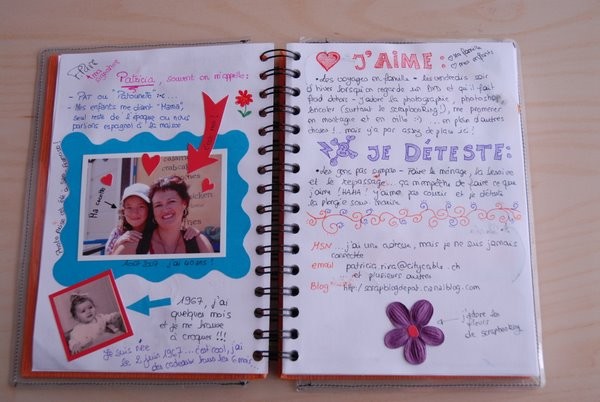 ma signature
Patricia, souvent on m'appelle:
- PAT ou "Patounette"...
- Mes enfants me disent "Mama",
seul reste de l'époque où nous
parlions espagnol à la maison
Ma cocotte
Août 2007
1967, j'ai
quelques mois
et je me trouve
à croquer!!!
Je suis née
le 2 juin 1967... c'est cool, j'ai
des cadeaux tous les 6 mois...
J'AIME:
ma famille
mes enfants
• Les voyages en famille - les vendredis soir
d'hiver lorsqu'on regarde un DVD et qu'il fait
froid dehors - J'adore la photographie, photoshop,
bricoler (surtout le scrapbooking), me promener
en montagne et en ville :) .... en plein d'autres
choses!.. mais y'a pas assez de place ici!
JE DÉTESTE:
• Les gens pas sympas - Faire le ménage, la lessive
et le repassage... ça m'empêche de faire ce que
j'aime! HAHA! J'aime pas courir et je déteste
la plongée sous marine
MSN ... j'ai une adresse, mais je ne suis jamais
connectée
email patricia.riva@citycable.ch
et plusieurs autres
Blog http://scrapblogdepat.canalblog.com
j'adore les
fleurs
de scrapbooking